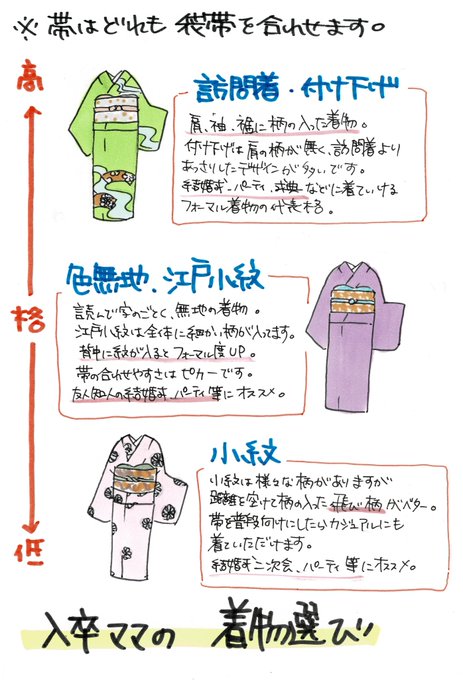 ※帯はどれも 袋帯を合わせます。
高
訪問着・付け下げ
肩、袖、裾に柄の入った着物。
付け下げは肩の柄が無く、訪問着より
あっさりしたデザインが多いです。
結婚式、パーティ、式典などに着ていける
フォーマル着物の代表格。
格
色無地、江戸小紋
読んで字のごとく、無地の着物。
江戸小紋は全体に細かい柄が入ってます。
背中に紋が入るとフォーマル度UP。
帯の合わせやすさはピカ一です。
友人知人の結婚式、パーティ等にオススメ。
小紋
小紋は様々な柄がありますが
距離を空けて柄の入った飛び柄がベター。
帯を普段向けにしたらカジュアルにも
着ていただけます。
結婚式二次会、パーティ等にオススメ。
低
入卒ママの 着物選び!!